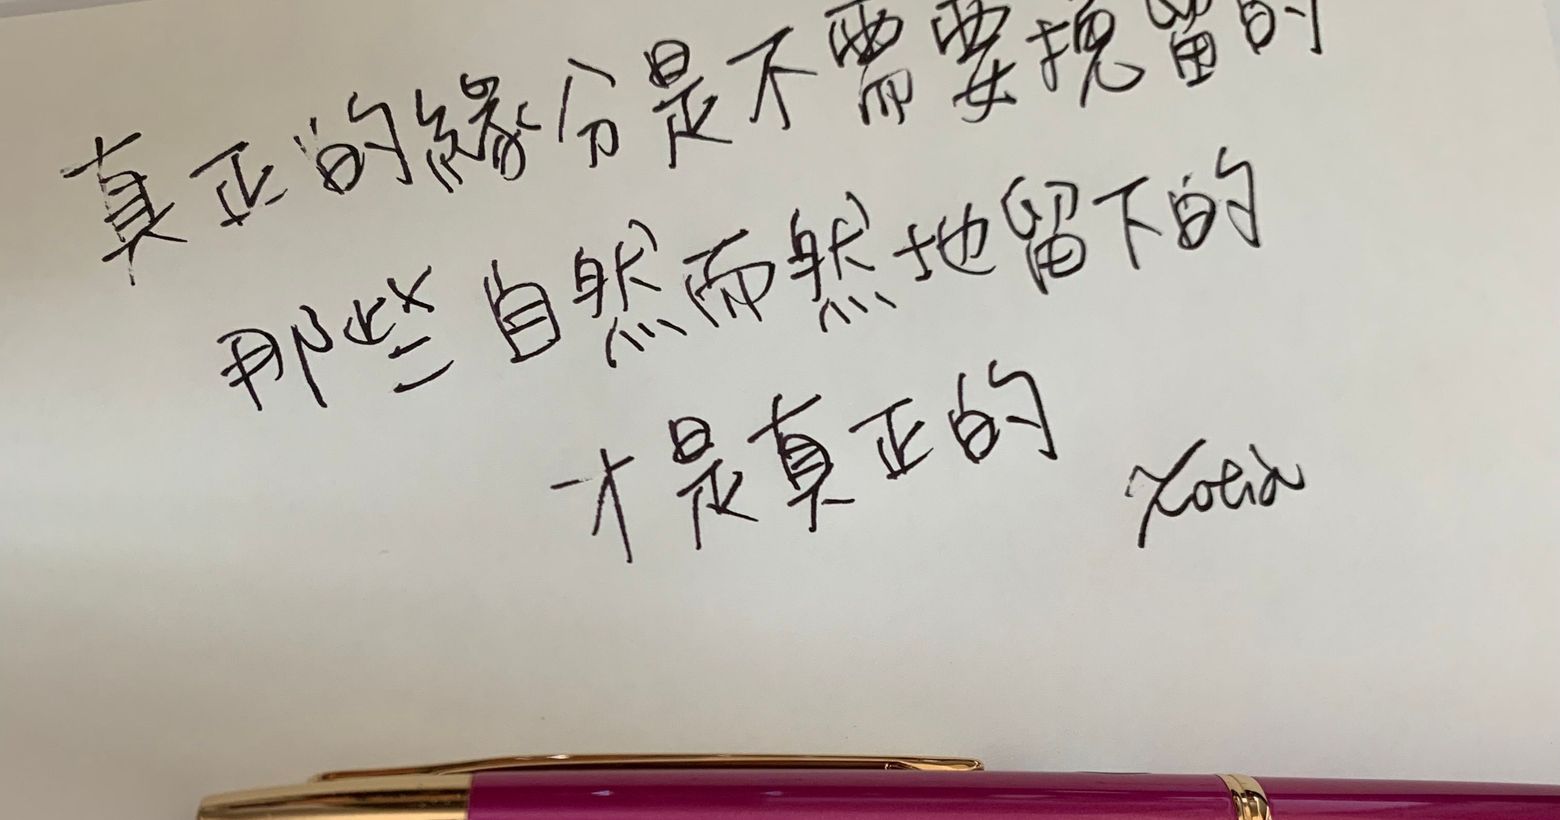 真正的緣分是不需要挽留的
那些自然而然地留下的
才是真正的